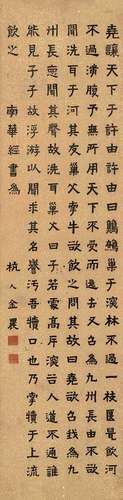 堯讓天下于許由許由曰鷦鷯巢于深林不過一枝匽鼠飲河
不過滿腹予無所用天下為遂去又召為九州長由不欲
聞洗耳于河其友巢父牽牛欲飲之問其故曰堯欲召我為九
州長惡聞其聲故洗耳巢父曰子若處高岸深谷人道不通誰
能見子子故浮游以聞求其名譽汚吾犢口也乃牽犢于上流
飲之 南華經書為 杭人金農